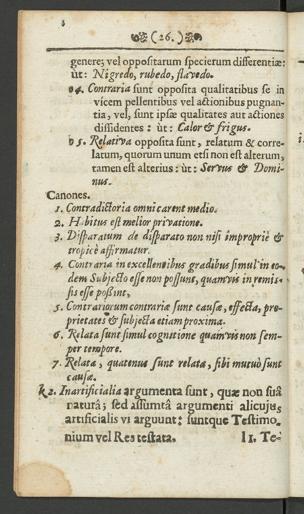 (26.)
genere; vel oppositarum specierum differentiæ:
ut: Nigredo, rubedo, flavedo.
o 4. Contraria sunt opposita qualitatibus se in
vicem pellentibus vel actionibus pugnan-
tia, vel, sunt ipsæ qualitates aut actiones
dissidentes : ut: Calor & frigus.
o 5. Relativa opposita sunt, relatum & corre-
latum, quorum unum etsi non est alterum,
tamen est alterius: ut: Servus & Domi-
nus.
Canones.
1. Contradictoria omni carent medio.
2. Habitus est melior privatione.
3. Disparatum de disparato non nisi impropriè &
tropicè affirmatur.
4. Contraria in excellentibus gradibus simul in eo-
dem Subjecto esse non possunt, quamvis in remis-
sis esse possint,
5. Contrariorum contrariæ sunt causæ, effecta, pro-
prietates & subjecta etiam proxima.
6. Relata sunt simul cognitione quamvis non sem-
per tempore.
7. Relata, quatenus sunt relata, sibi mutuò sunt
causæ.
k 2. Inartificialia argumenta sunt, quæ non suâ
naturâ; sed assumtâ argumenti alicujus
artificialis vi arguunt: suntque Testimo-
nium vel Res testata. l 1. Te-